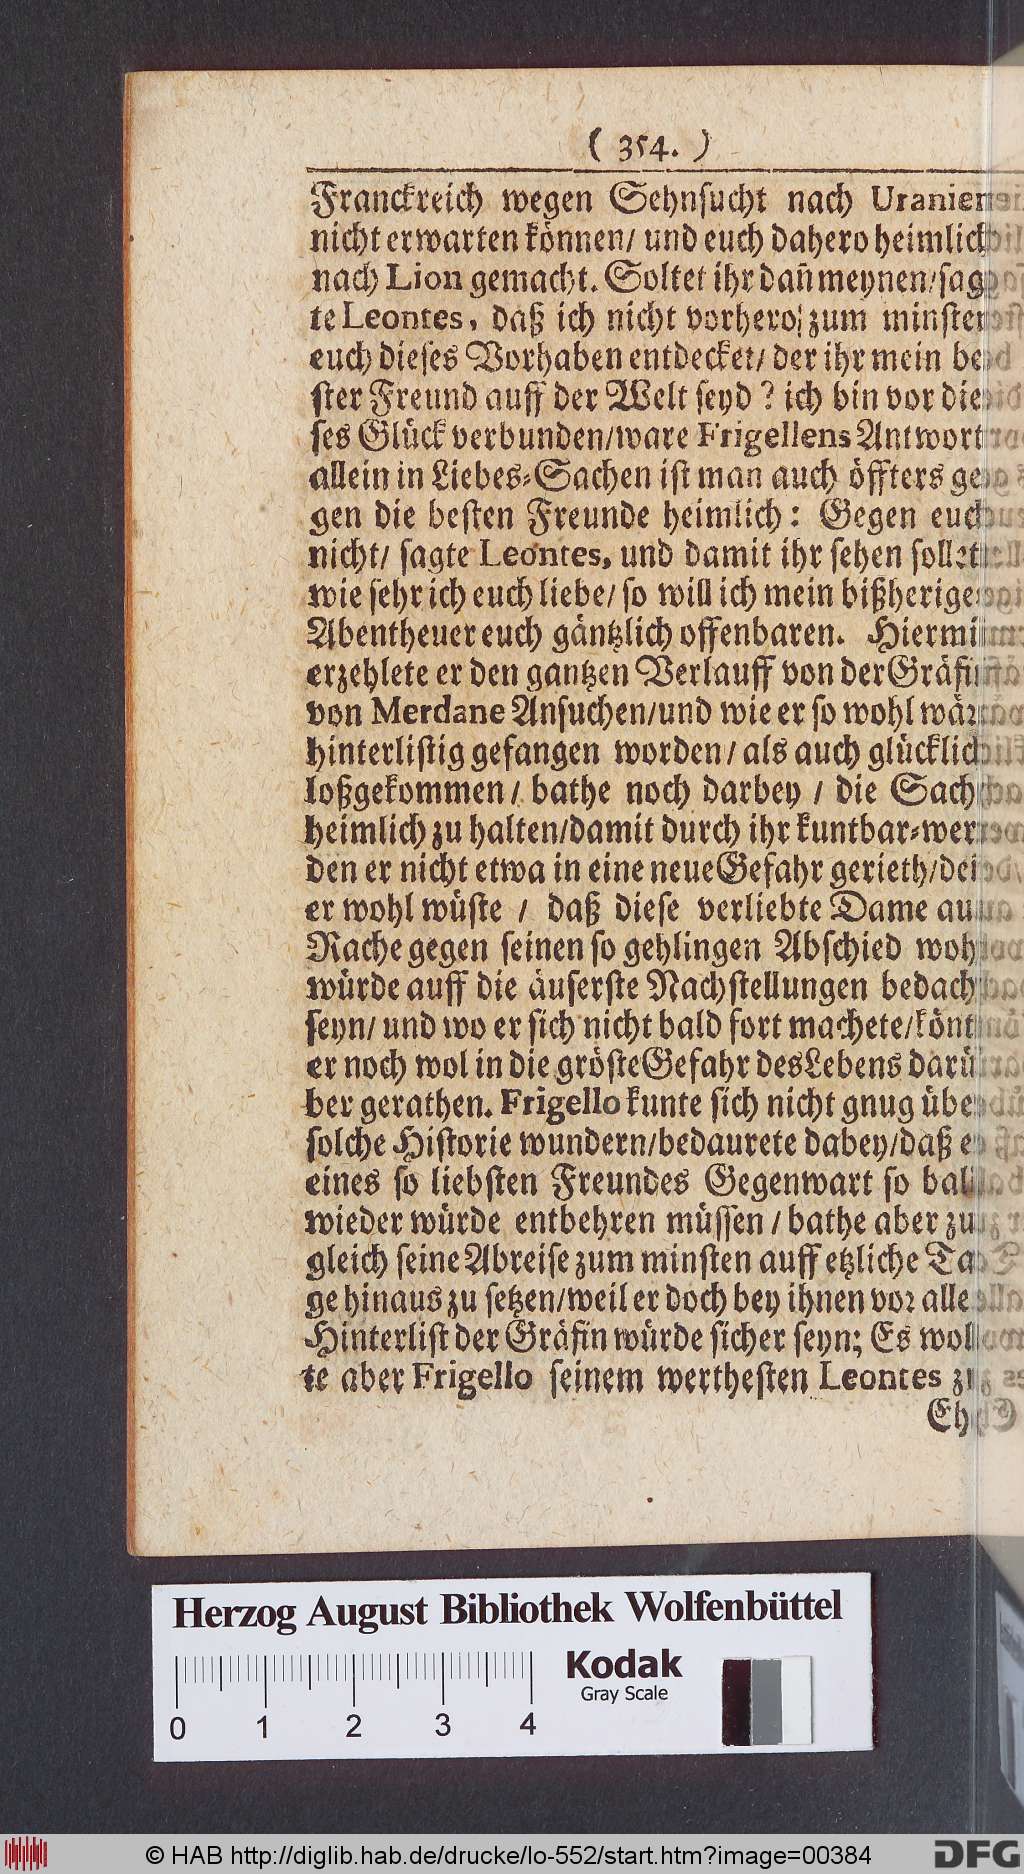 ( 354. )
Franckreich wegen Sehnsucht nach Uranien
nicht erwarten können/ und euch dahero heimlich
nach Lion gemacht. Soltet ihr dañ meynen/sag-
te Leontes, daß ich nicht vorhero/ zum minsten
euch dieses Vorhaben entdecket/ der ihr mein be-
ster Freund auff der Welt seyd ? ich bin vor die-
ses Glück verbunden/ware Frigellens Antwort
allein in Liebes-Sachen ist man auch öffters ge-
gen die besten Freunde heimlich: Gegen euch
nicht/ sagte Leontes, und damit ihr sehen sollet
wie sehr ich euch liebe/ so will ich mein bißheriges
Abentheuer euch gäntzlich offenbaren. Hiermit
erzehlete er den gantzen Verlauff von der Gräfin
von Merdane Ansuchen/und wie er so wohl wär
hinterlistig gefangen worden/ als auch glücklich
loßgekommen/ bathe noch darbey / die Sach
heimlich zu halten/damit durch ihr kuntbar-wer-
den er nicht etwa in eine neue Gefahr gerieth/den
er wohl wüste / daß diese verliebte Dame aus
Rache gegen seinen so gehlingen Abschied wohl
würde auff die äuserste Nachstellungen bedacht
seyn/ und wo er sich nicht bald fort machete/könt
er noch wol in die gröste Gefahr des Lebens darü-
ber gerathen. Frigello kunte sich nicht gnug über
solche Historie wundern/bedaurete dabey/daß er
eines so liebsten Freundes Gegenwart so bald
wieder würde entbehren müssen / bathe aber zu-
gleich seine Abreise zum minsten auff etzliche Ta-
ge hinaus zu setzen/weil er doch bey ihnen vor alle
Hinterlist der Gräfin würde sicher seyn; Es wol-
te aber Frigello seinem werthesten Leontes zu
Eh
Herzog August Bibliothek Wolfenbüttel
Kodak
Gray Scale
0 1 2 3 4
© HAB http://diglib.hab.de/drucke/lo-552/start.htm?image=00384
DFG